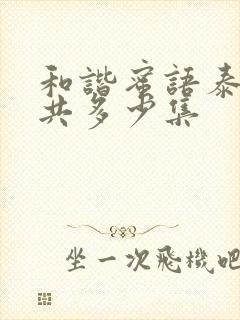 和諧蜜語泰
共多少集
坐一次飛機吧